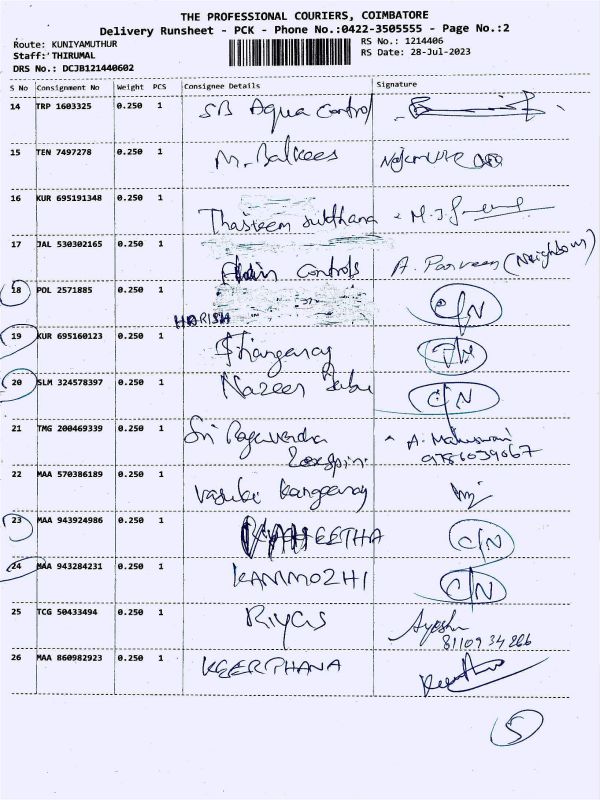 THE PROFESSIONAL COURIERS, COIMBATORE
Delivery Runsheet - PCK - Phone No.:0422-3505555 - Page No.:2
Route: KUNIYAMUTHUR RS No.: 1214406
Staff: THIRUMAL RS Date: 28-Jul-2023
DRS No.: DCJB121440602
S No Consignment No Weight PCS Consignee Details Signature
14 TRP 1603325 0.250 1 SB Aqua Control
15 TEN 7497278 0.250 1 M. Balkees
16 KUR 695191348 0.250 1
Thasleem sulthana
17 JAL 530302165 0.250 1
Controls A. Parveen (Neighbour)
18 POL 2571885 0.250 1 C/N
HARISH
19 KUR 695160123 0.250 1
20 SLM 324578397 0.250 1 Nazeer C/N
21 TMG 200469339 0.250 1 Sri Ragavendra A. Maheswari
9786039067
22 MAA 570386189 0.250 1
Vasuki
23 MAA 943924986 0.250 1 C/N
24 MAA 943284231 0.250 1 KANMOZHI C/N
25 TCG 50433494 0.250 1 Riyas Ayesha
8110934266
26 MAA 860982923 0.250 1 KEERTHANA
5